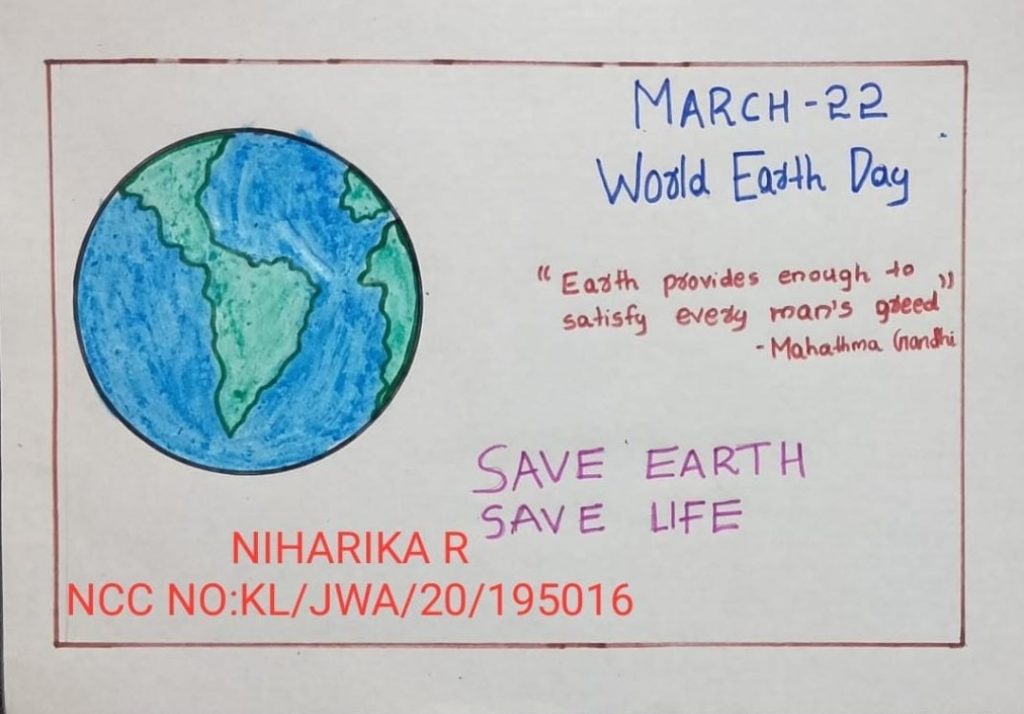 MARCH - 22
World Earth Day
"Earth provides enough to
satisfy every man's greed"
- Mahathma Gandhi
SAVE EARTH
SAVE LIFE
NIHARIKA R
NCC NO:KL/JWA/20/195016